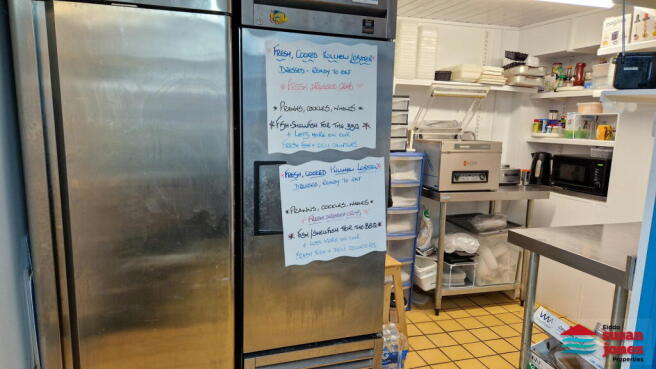 FRESH, COOKED KILLMEN LOBSTER
DRESSED - READY TO EAT
* FRESH DRESSED CRAB
* PRAWNS, COCKLES, WHELKS
* FISH-SHELLFISH FOR THE BBQ *
+ LOTS MORE ON OUR
FRESH FISH + DELI COUNTERS
FRESH, COOKED KILLMEN LOBSTER
DRESSED, READY TO EAT
* PRAWNS, COCKLES, WHELKS
* FRESH DRESSED CRAB
* FISH/SHELLFISH FOR THE BBQ *
+ LOTS MORE ON OUR
FRESH FISH + DELI COUNTERS
Eiddo
susan
jones
Properties